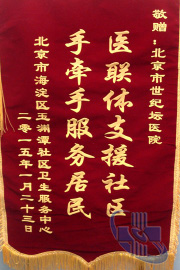 敬赠：北京市世纪坛医院
医联体支援社区
手牵手服务居民
北京市海淀区玉渊潭社区卫生服务中心
二零一五年一月二十三日